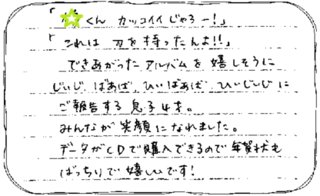 「☆くん カッコイイじゃろー!」
「これは 刀を持ったんよ!!」
できあがった アルバムを 嬉しそうに
じぃじ、ばぁば、ひいばぁば、ひいじぃじに
ご報告する 息子4才。
みんなが笑顔になれました。
データがCDで購入できるので年賀状も
ばっちりで嬉しいです!